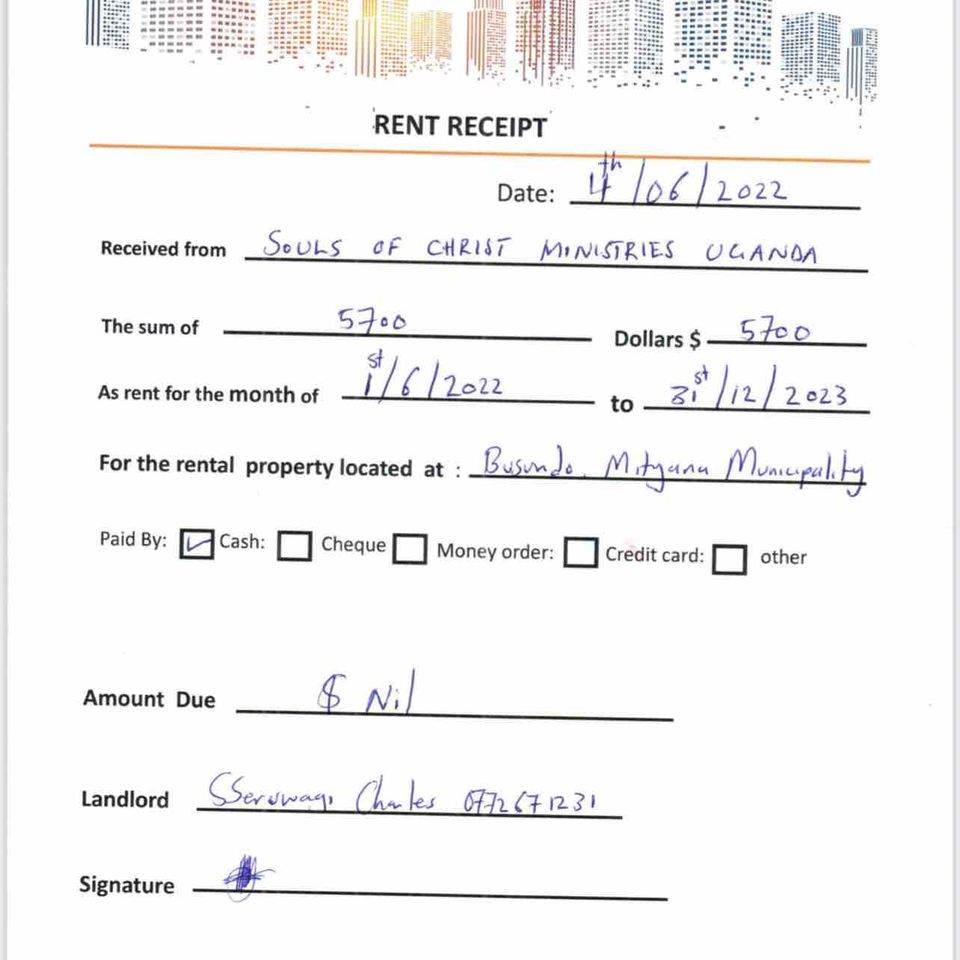 RENT RECEIPT
Date: 4th/06/2022
Received from SOULS OF CHRIST MINISTRIES UGANDA
The sum of 5700 Dollars $ 5700
As rent for the month of 1st/6/2022 to 31st/12/2023
For the rental property located at : Busundo. Mityana Municipality
Paid By: Cash: Cheque Money order: Credit card: other
Amount Due $ Nil
Landlord SSeruwagi Charles 0772671231
Signature